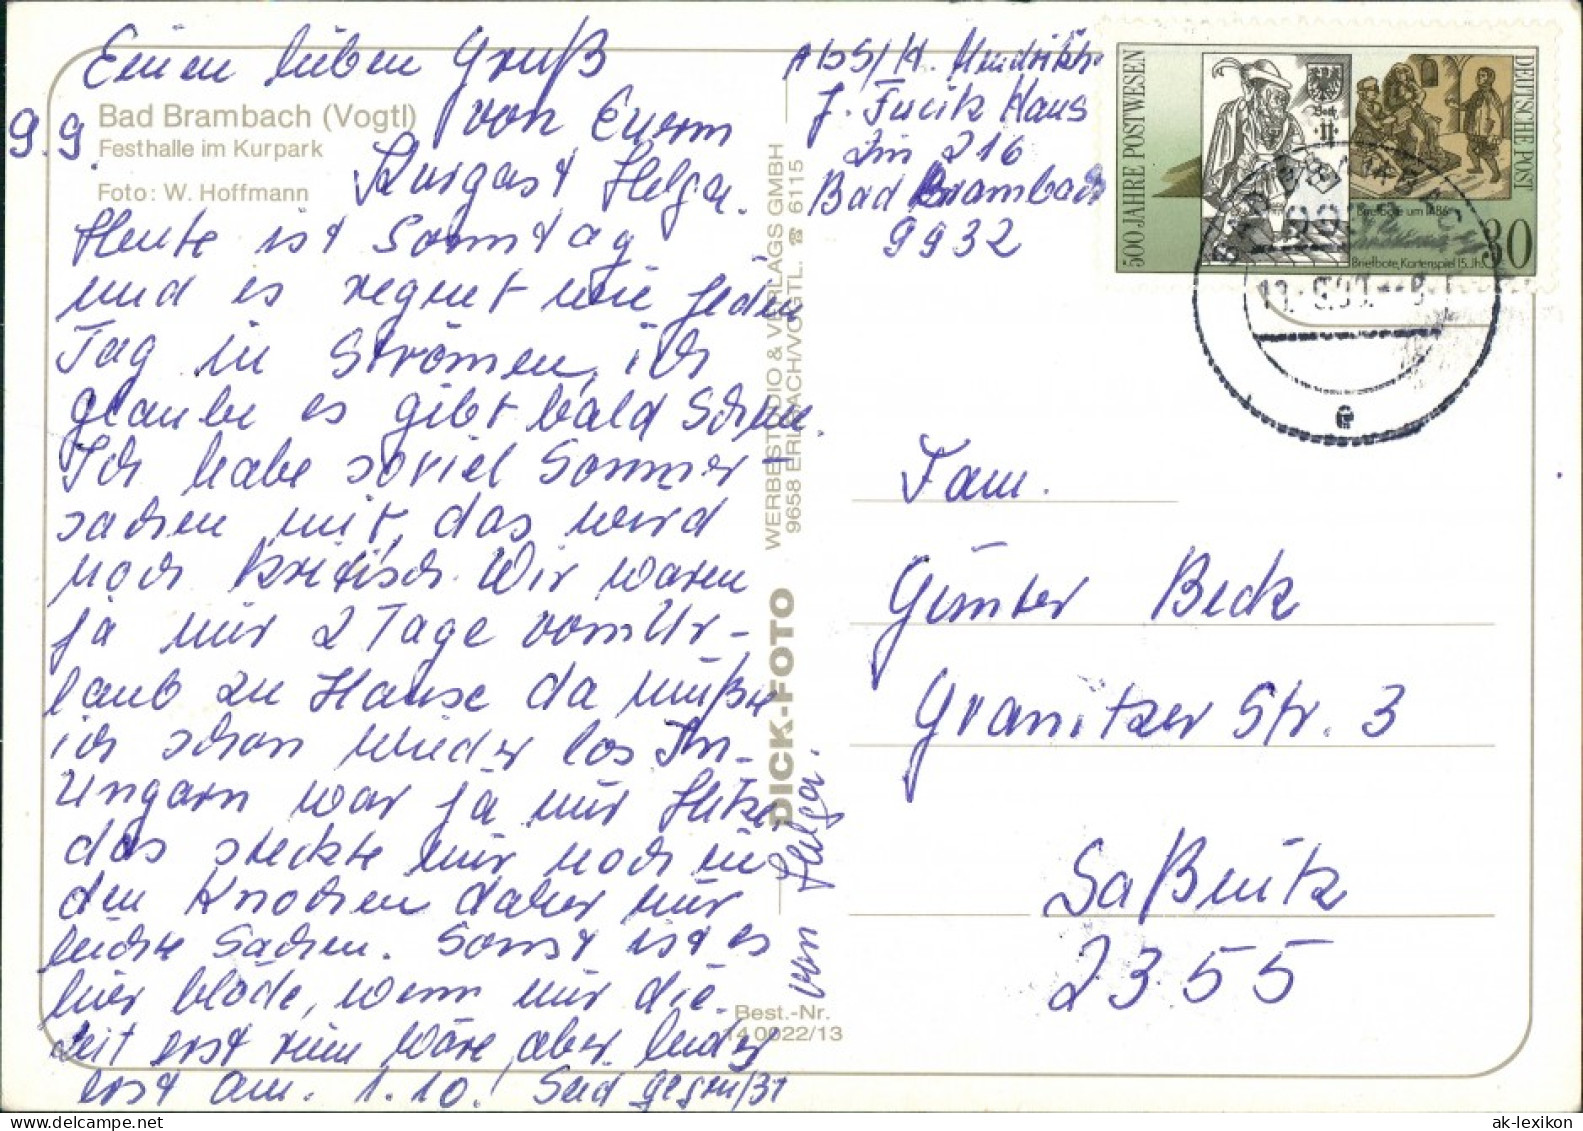 Einen lieben Gruß
von Eurem
Kurgast Helga.
9.9.
Bad Brambach (Vogtl)
Festhalle im Kurpark
Foto: W. Hoffmann
Heute ist Sonntag
und es regnet wie jeden
Tag in Strömen, ich
glaube es gibt bald Schnee.
Ich habe soviel Sommer-
sachen mit, das wird
noch kritisch. Wir waren
ja nur 2 Tage vom Ur-
laub zu Hause da mußte
ich schon wieder los In
Ungarn war ja nur Hitze,
das steckte mir noch in
den Knochen daher nur
leichte Sachen. Sonst ist es
hier blöde, wenn nur die
Zeit erst rum wäre, aber leider
erst am 1.10.! Seid gegrüßt
von Helga.
WERBESTUDIO & VERLAGS GMBH
9658 ERLBACH/VOGTL. ☎ 6115
DICK-FOTO
Best.-Nr.
14 0922/13
Abs/H.
J. Fucik Haus
Zim 216
Bad Brambach
9932
500 JAHRE POSTWESEN
DEUTSCHE POST
Botenbote um 1486
Briefbote, Kartenspiel 15. Jh.
30
e
Fam.
Günter Beck
Granitzer Str. 3
Saßnitz
2355
ak-lexikon